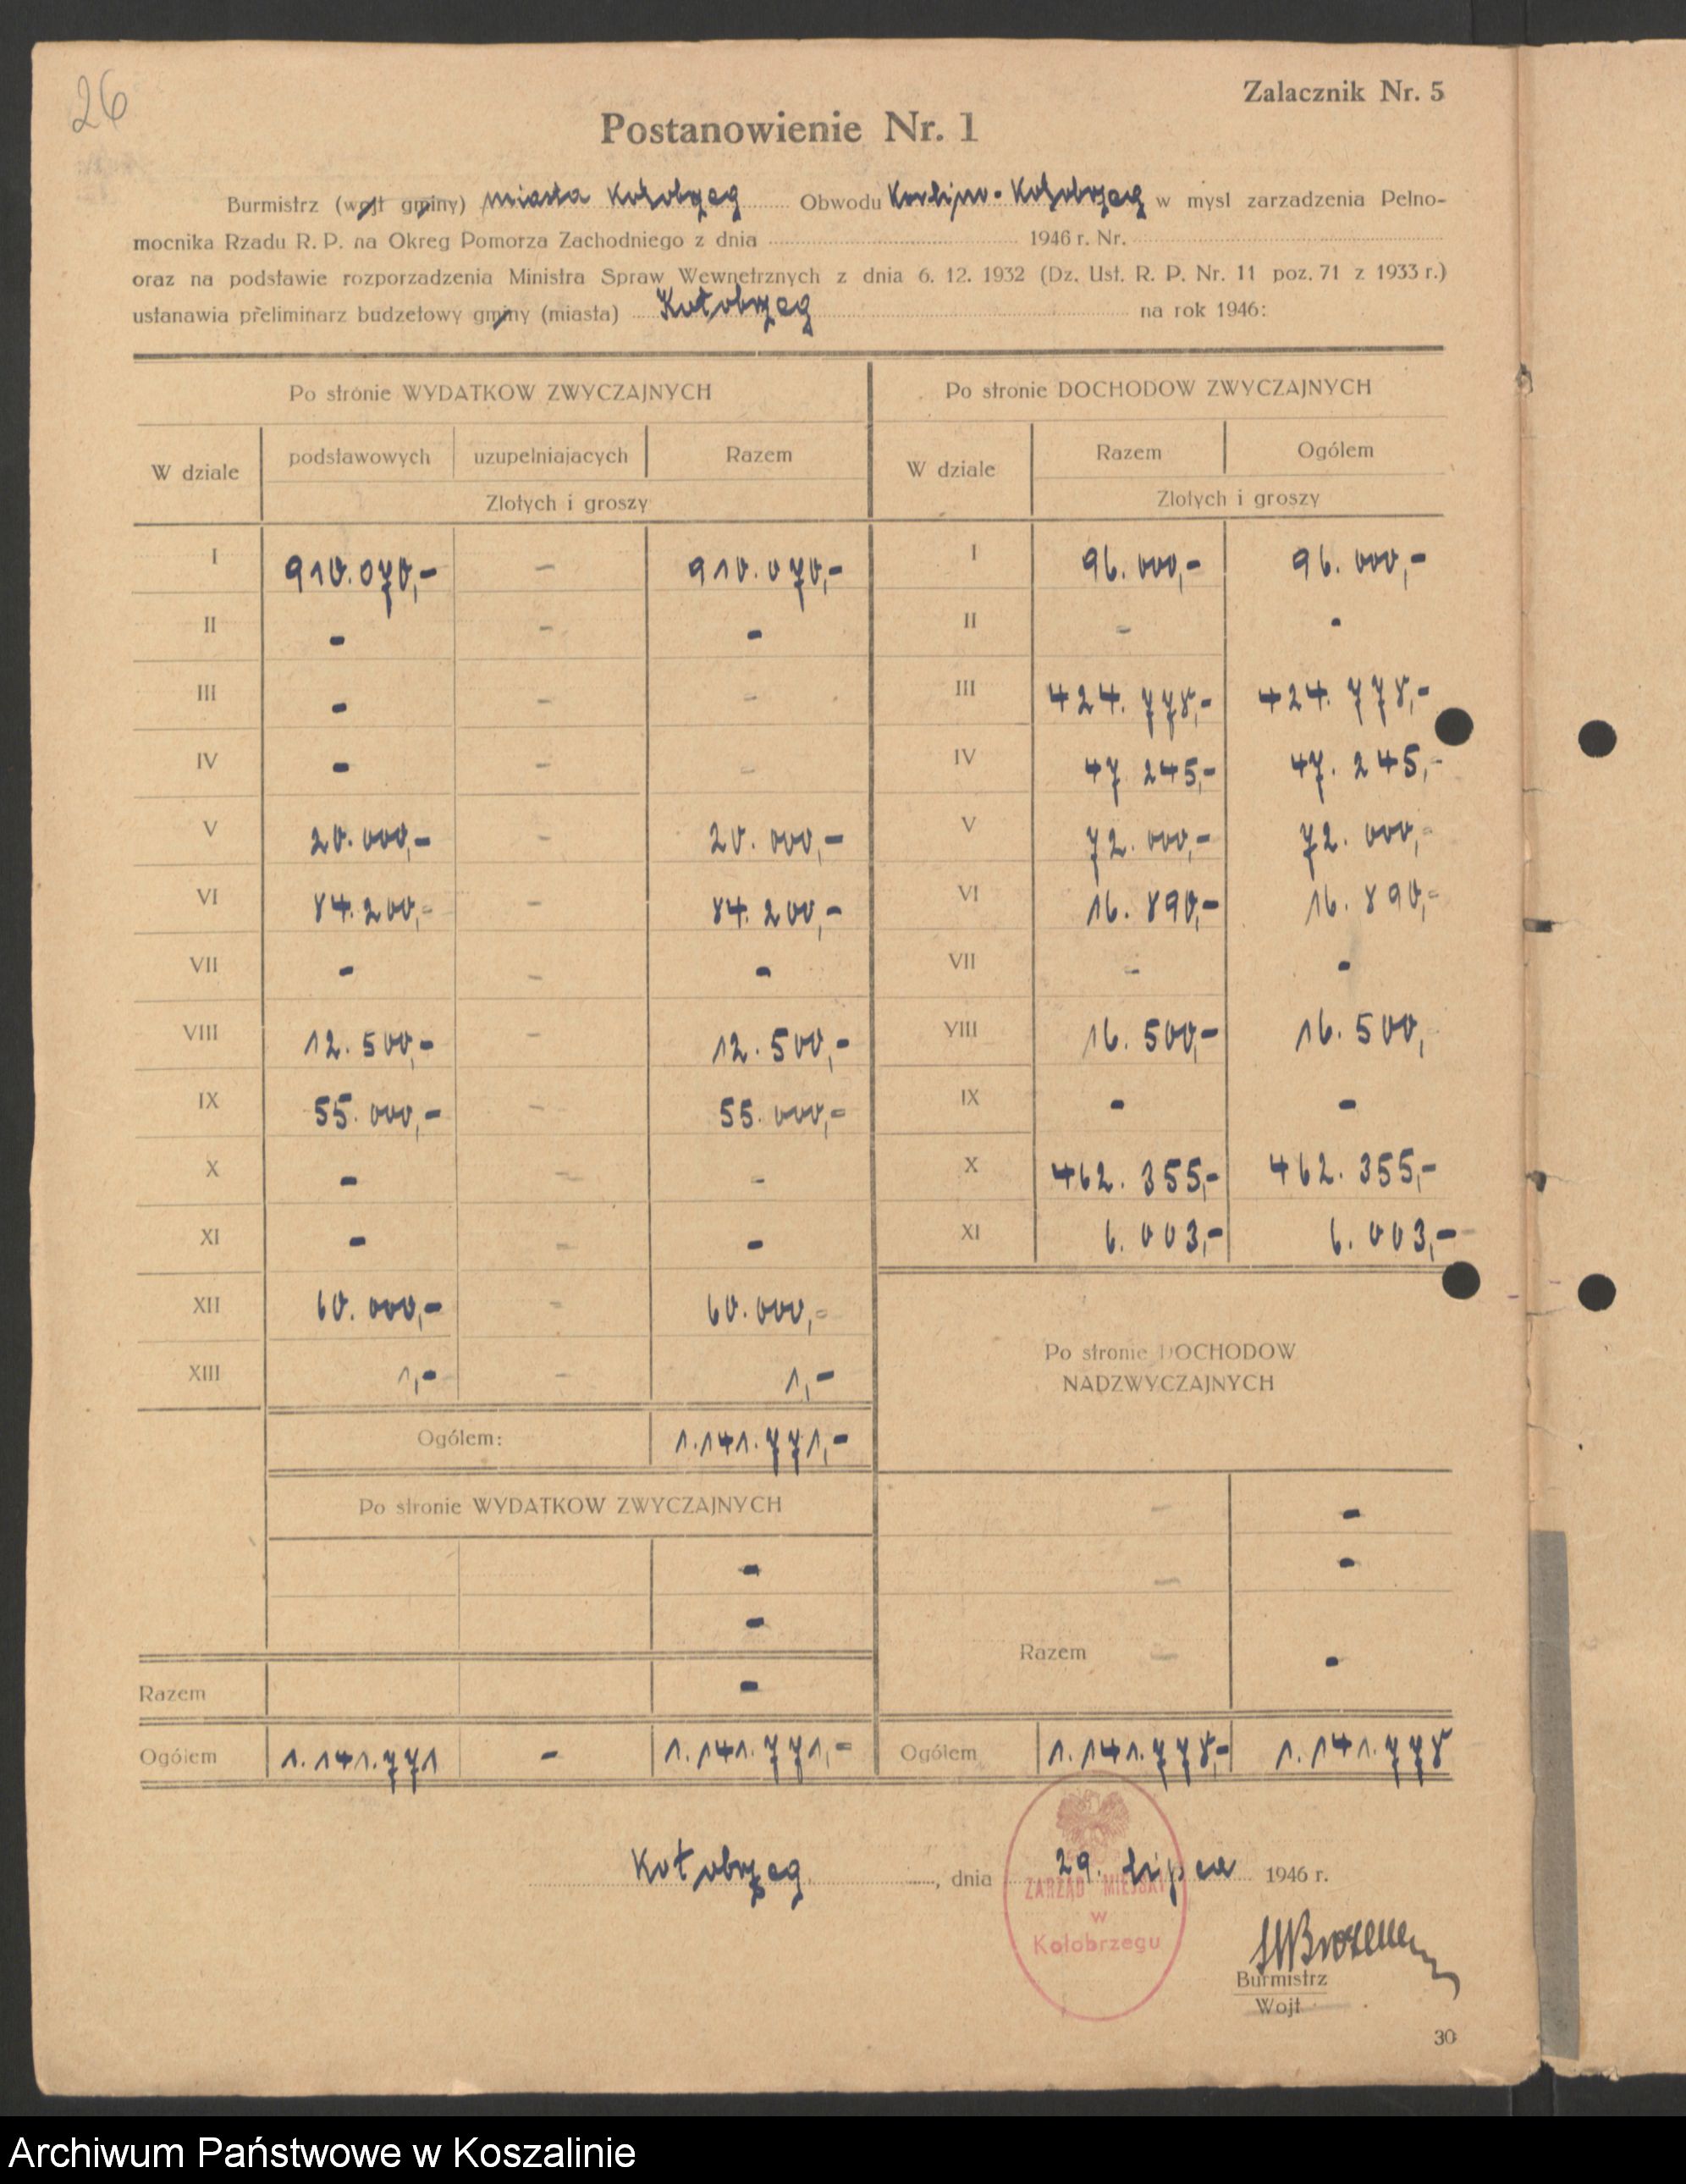 26
Zalacznik Nr. 5
Postanowienie Nr. 1
Burmistrz (wojt gminy) miasta Kołobrzeg Obwodu Korlino-Kołobrzeg w mysl zarzadzenia Pelno-
mocnika Rzadu R. P. na Okreg Pomorza Zachodniego z dnia 1946 r. Nr.
oraz na podstawie rozporzadzenia Ministra Spraw Wewnetrznych z dnia 6. 12. 1932 (Dz. Ust. R. P. Nr. 11 poz. 71 z 1933 r.)
ustanawia preliminarz budzetowy gminy (miasta) Kołobrzeg na rok 1946:
Po stronie WYDATKOW ZWYCZAJNYCH Po stronie DOCHODOW ZWYCZAJNYCH
W dziale podstawowych uzupelniajacych Razem W dziale Razem Ogólem
Zlotych i groszy Zlotych i groszy
I 910.070,- - 910.070,- I 96.000,- 96.000,-
II - - - II - -
III - - - III 424.778,- 424.778,-
IV - - - IV 47 245,- 47.245,-
V 20.000,- - 20.000,- V 72.000,- 72.000,-
VI 84.200,- - 84.200,- VI 16.890,- 16.890,-
VII - - - VII - -
VIII 12.500,- - 12.500,- VIII 16.500,- 16.500,
IX 55.000,- - 55.000,- IX - -
X - - - X 462.355,- 462.355,-
XI - - - XI 6.003,- 6.003,-
XII 60.000,- - 60.000,-
XIII 1,- - 1,-
Po stronie DOCHODOW
NADZWYCZAJNYCH
Ogólem: 1.141.771,-
Po stronie WYDATKOW ZWYCZAJNYCH - -
- - -
-
Razem - -
Razem -
Ogólem 1.141.771 - 1.141.771,- Ogólem 1.141.778,- 1.141.778
Kołobrzeg, dnia 29. Lipca 1946 r.
ZARZĄD MIEJSKI
w
Kołobrzegu
Burmistrz
Wojt
30
Archiwum Państwowe w Koszalinie